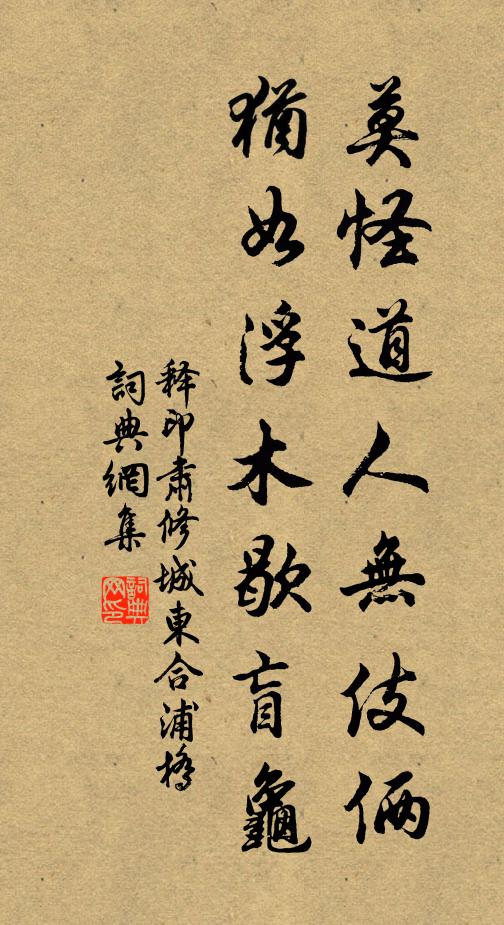 莫怪道人無伎倆
猶如浮木歇盲龜
釋印肅修城東合浦橋
詞典網集
詞典网印